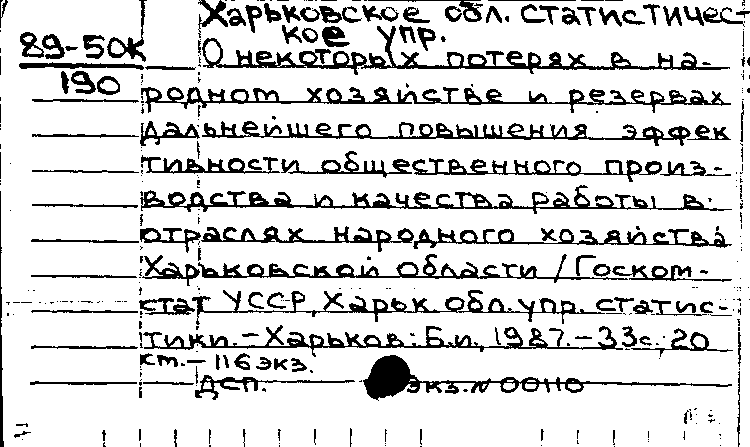 Харьковское обл. статистичес-
кое упр.
89-50К
190
О некоторых потерях в на-
родном хозяйстве и резервах
дальнейшего повышения эффек
тивности общественного произ-
водства и качества работы в
отраслях народного хозяйства
Харьковской области / Госком-
стат УССР, Харьк. обл. упр. статис-
тики. - Харьков: Б.и., 1987. - 33с.; 20
см. - 116 экз.
ДСП. экз. № 00110